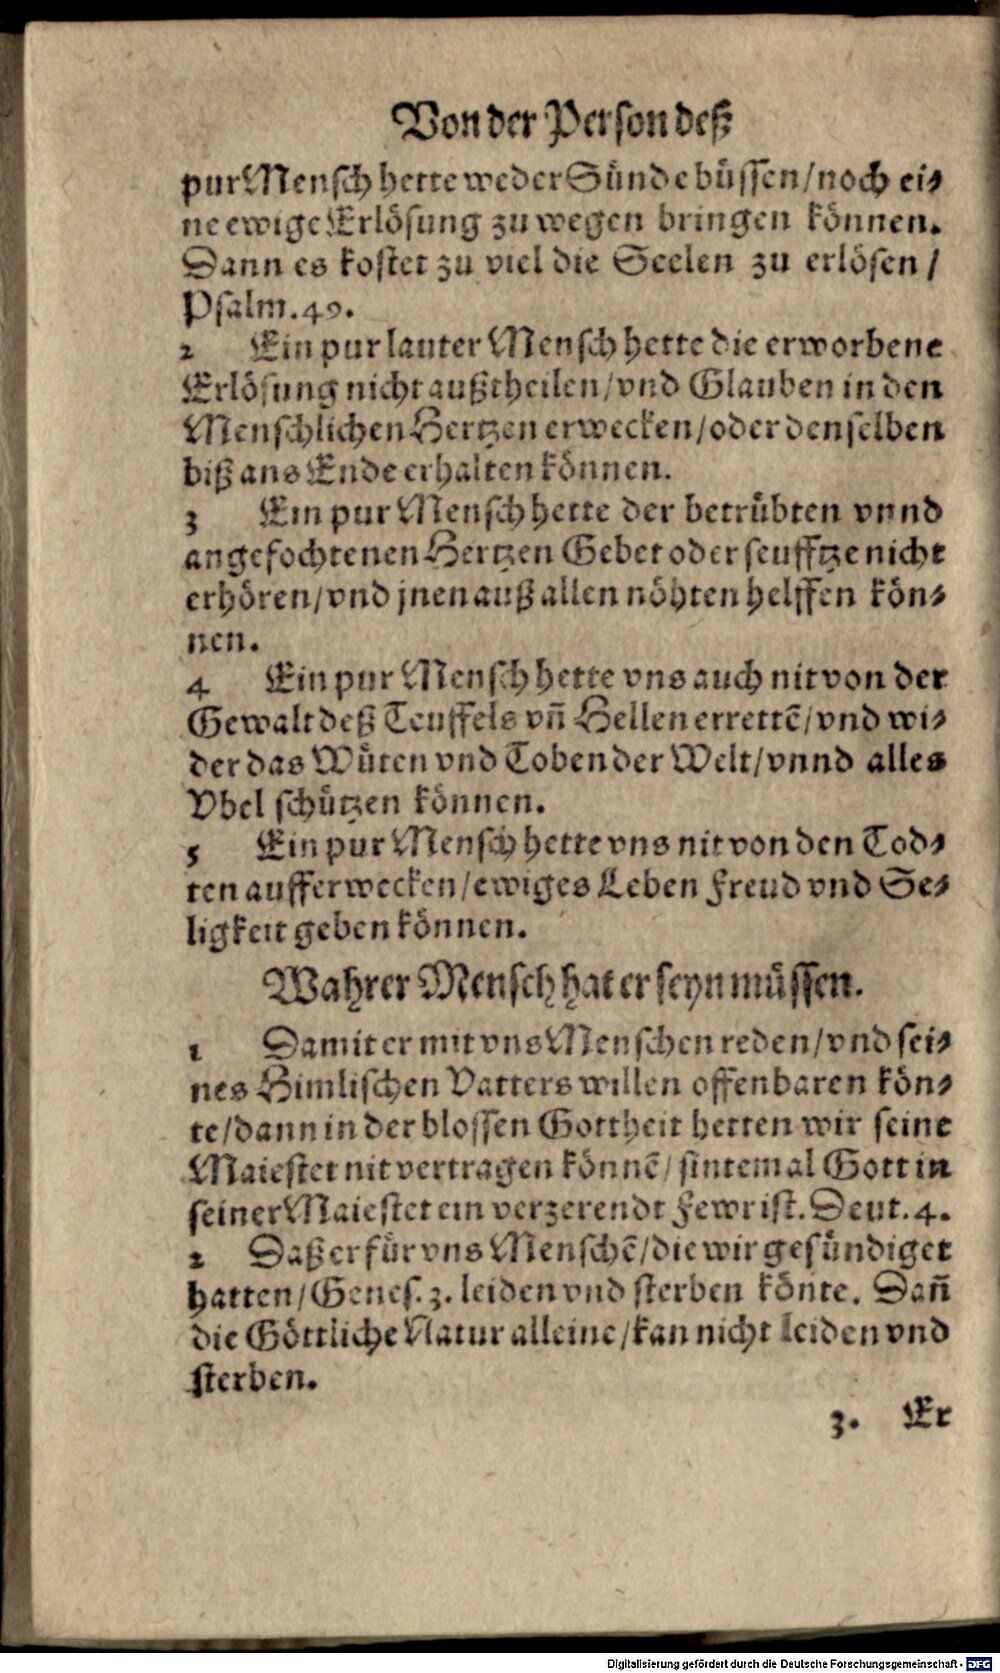 Von der Person deß
pur Mensch hette weder Sünde büssen/noch ei-
ne ewige Erlösung zu wegen bringen können.
Dann es kostet zu viel die Seelen zu erlösen/
Psalm. 49.
2 Ein pur lauter Mensch hette die erworbene
Erlösung nicht außtheilen/vnd Glauben in den
Menschlichen Hertzen erwecken/oder denselben
biß ans Ende erhalten können.
3 Ein pur Mensch hette der betrübten vnnd
angefochtenen Hertzen Gebet oder seufftze nicht
erhören/vnd jnen auß allen nöhten helffen kön-
nen.
4 Ein pur Mensch hette vns auch nit von der
Gewalt deß Teuffels vñ Hellen errettẽ/vnd wi-
der das Wüten vnd Toben der Welt/vnnd alles
Vbel schützen können.
5 Ein pur Mensch hette vns nit von den Tod-
ten aufferwecken/ewiges Leben Freud vnd Se-
ligkeit geben können.
Wahrer Mensch hat er seyn müssen.
1 Damit er mit vns Menschen reden/vnd sei-
nes Himlischen Vatters willen offenbaren kön-
te/dann in der blossen Gottheit hetten wir seine
Maiestet nit vertragen könnẽ/sintemal Gott in
seiner Maiestet ein verzerendt Fewr ist. Deut. 4.
2 Daß er für vns Menschẽ/die wir gesündiget
hatten/Genes. 3. leiden vnd sterben könte. Dañ
die Göttliche Natur alleine/kan nicht leiden vnd
sterben.
3. Er
Digitalisierung gefördert durch die Deutsche Forschungsgemeinschaft - DFG